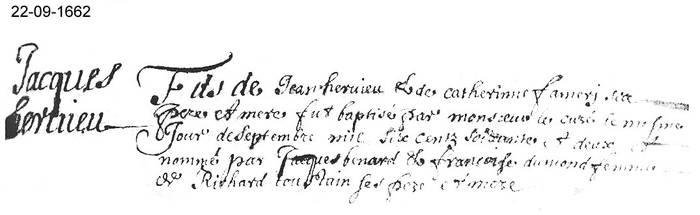 22-09-1662
Jacques
hervieu
Fils de Jean hervieu & de catherinne
pere et mere fut baptisé par monsieur le curé le
Jour de Septembre mil six centz soixante et deux
nommé par Jacques benard & francoise dumond femme
de Richard toustain ses pere et mere